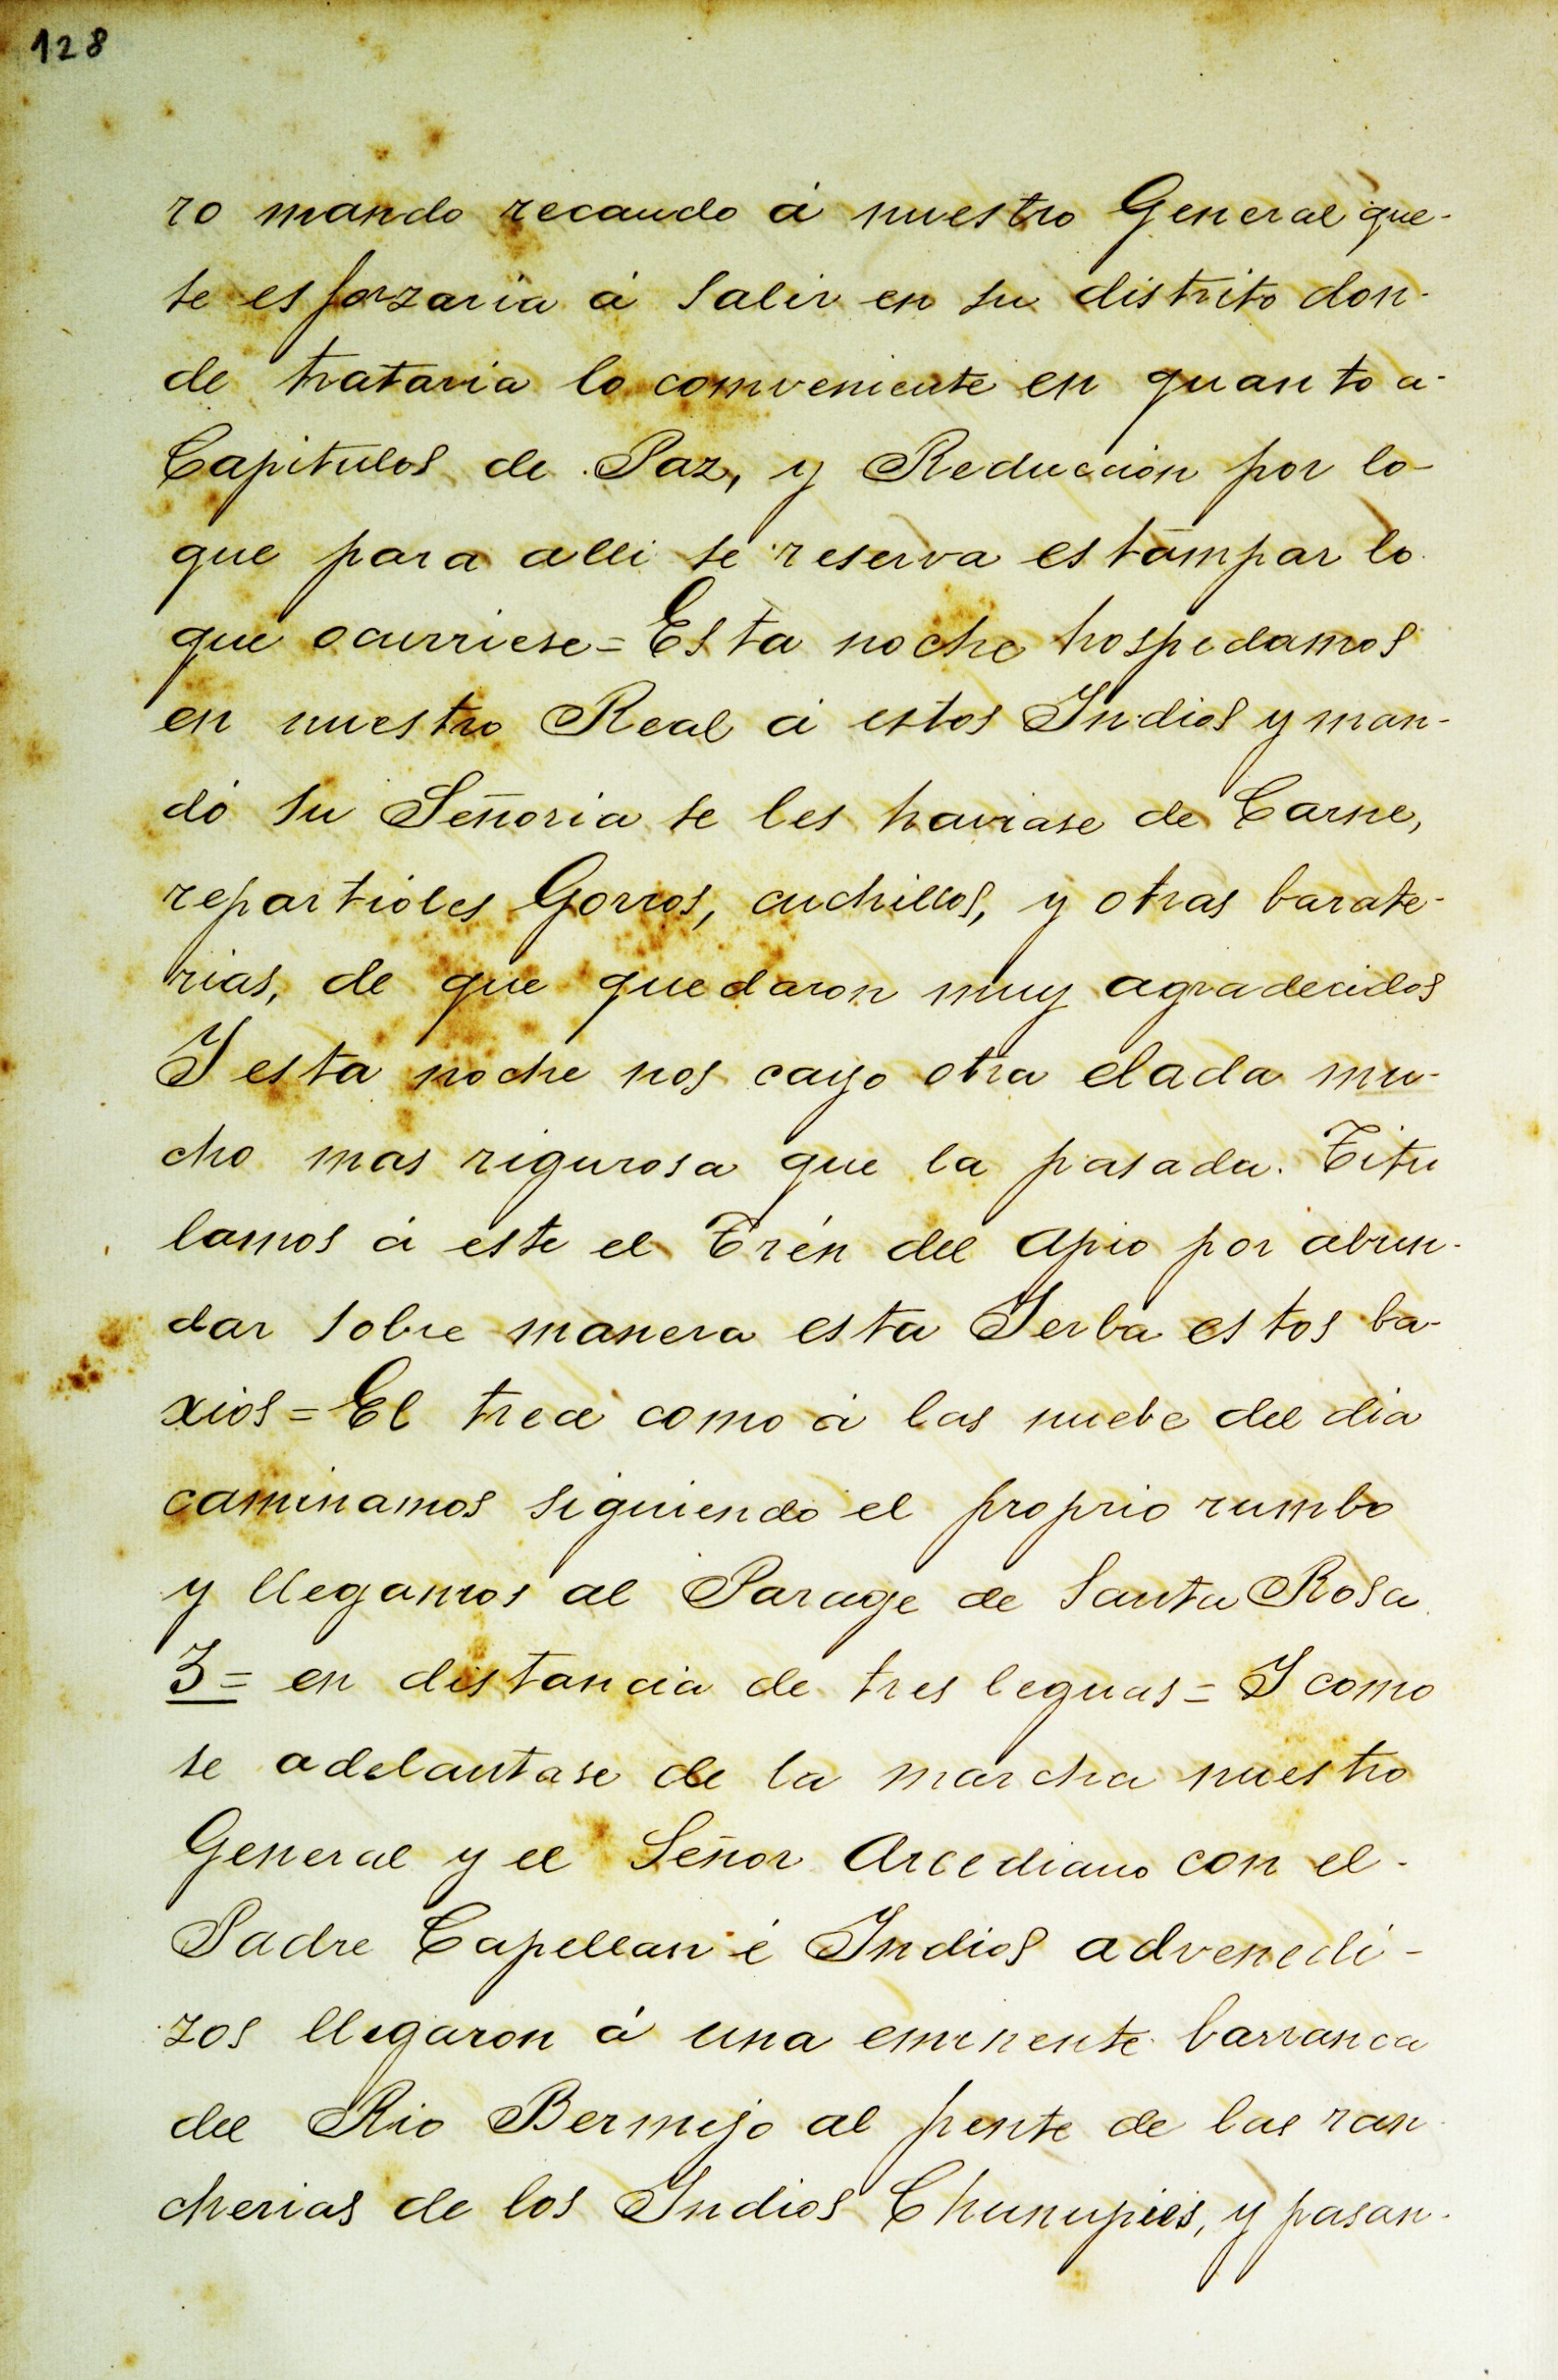 128
ro mando recaudo á nuestro General que-
se esforzaria á salir en su distrito don-
de trataria lo comveniente en quanto a-
Capitulos de Paz, y Reduccion por lo-
que para alli se reserva estampar lo
que ocurriese = Esta noche hospedamos
en nuestro Real á estos Indios y man-
dó su Señoria se les haviase de Carne,
repartioles Gorros, cuchillos, y otras barate-
rias, de que quedaron muy agradecidos
I esta noche nos cayo otra elada mu-
cho mas rigurosa que la pasada. Titu
lamos á este el Trén del Apio por abun-
dar sobre manera esta Ierba estos ba-
xios = El trece como á las nuebe del dia
caminamos siguiendo el proprio rumbo
y llegamos al Parage de Santa Rosa
3 = en distancia de tres leguas = I como
se adelantase de la marcha nuestro
General y el Señor Arcediano con el-
Padre Capellan é Indios advenedi-
zos llegaron á una eminente barranca
del Rio Bermejo al frente de las ran
cherias de los Indios Chunupies, y pasan-